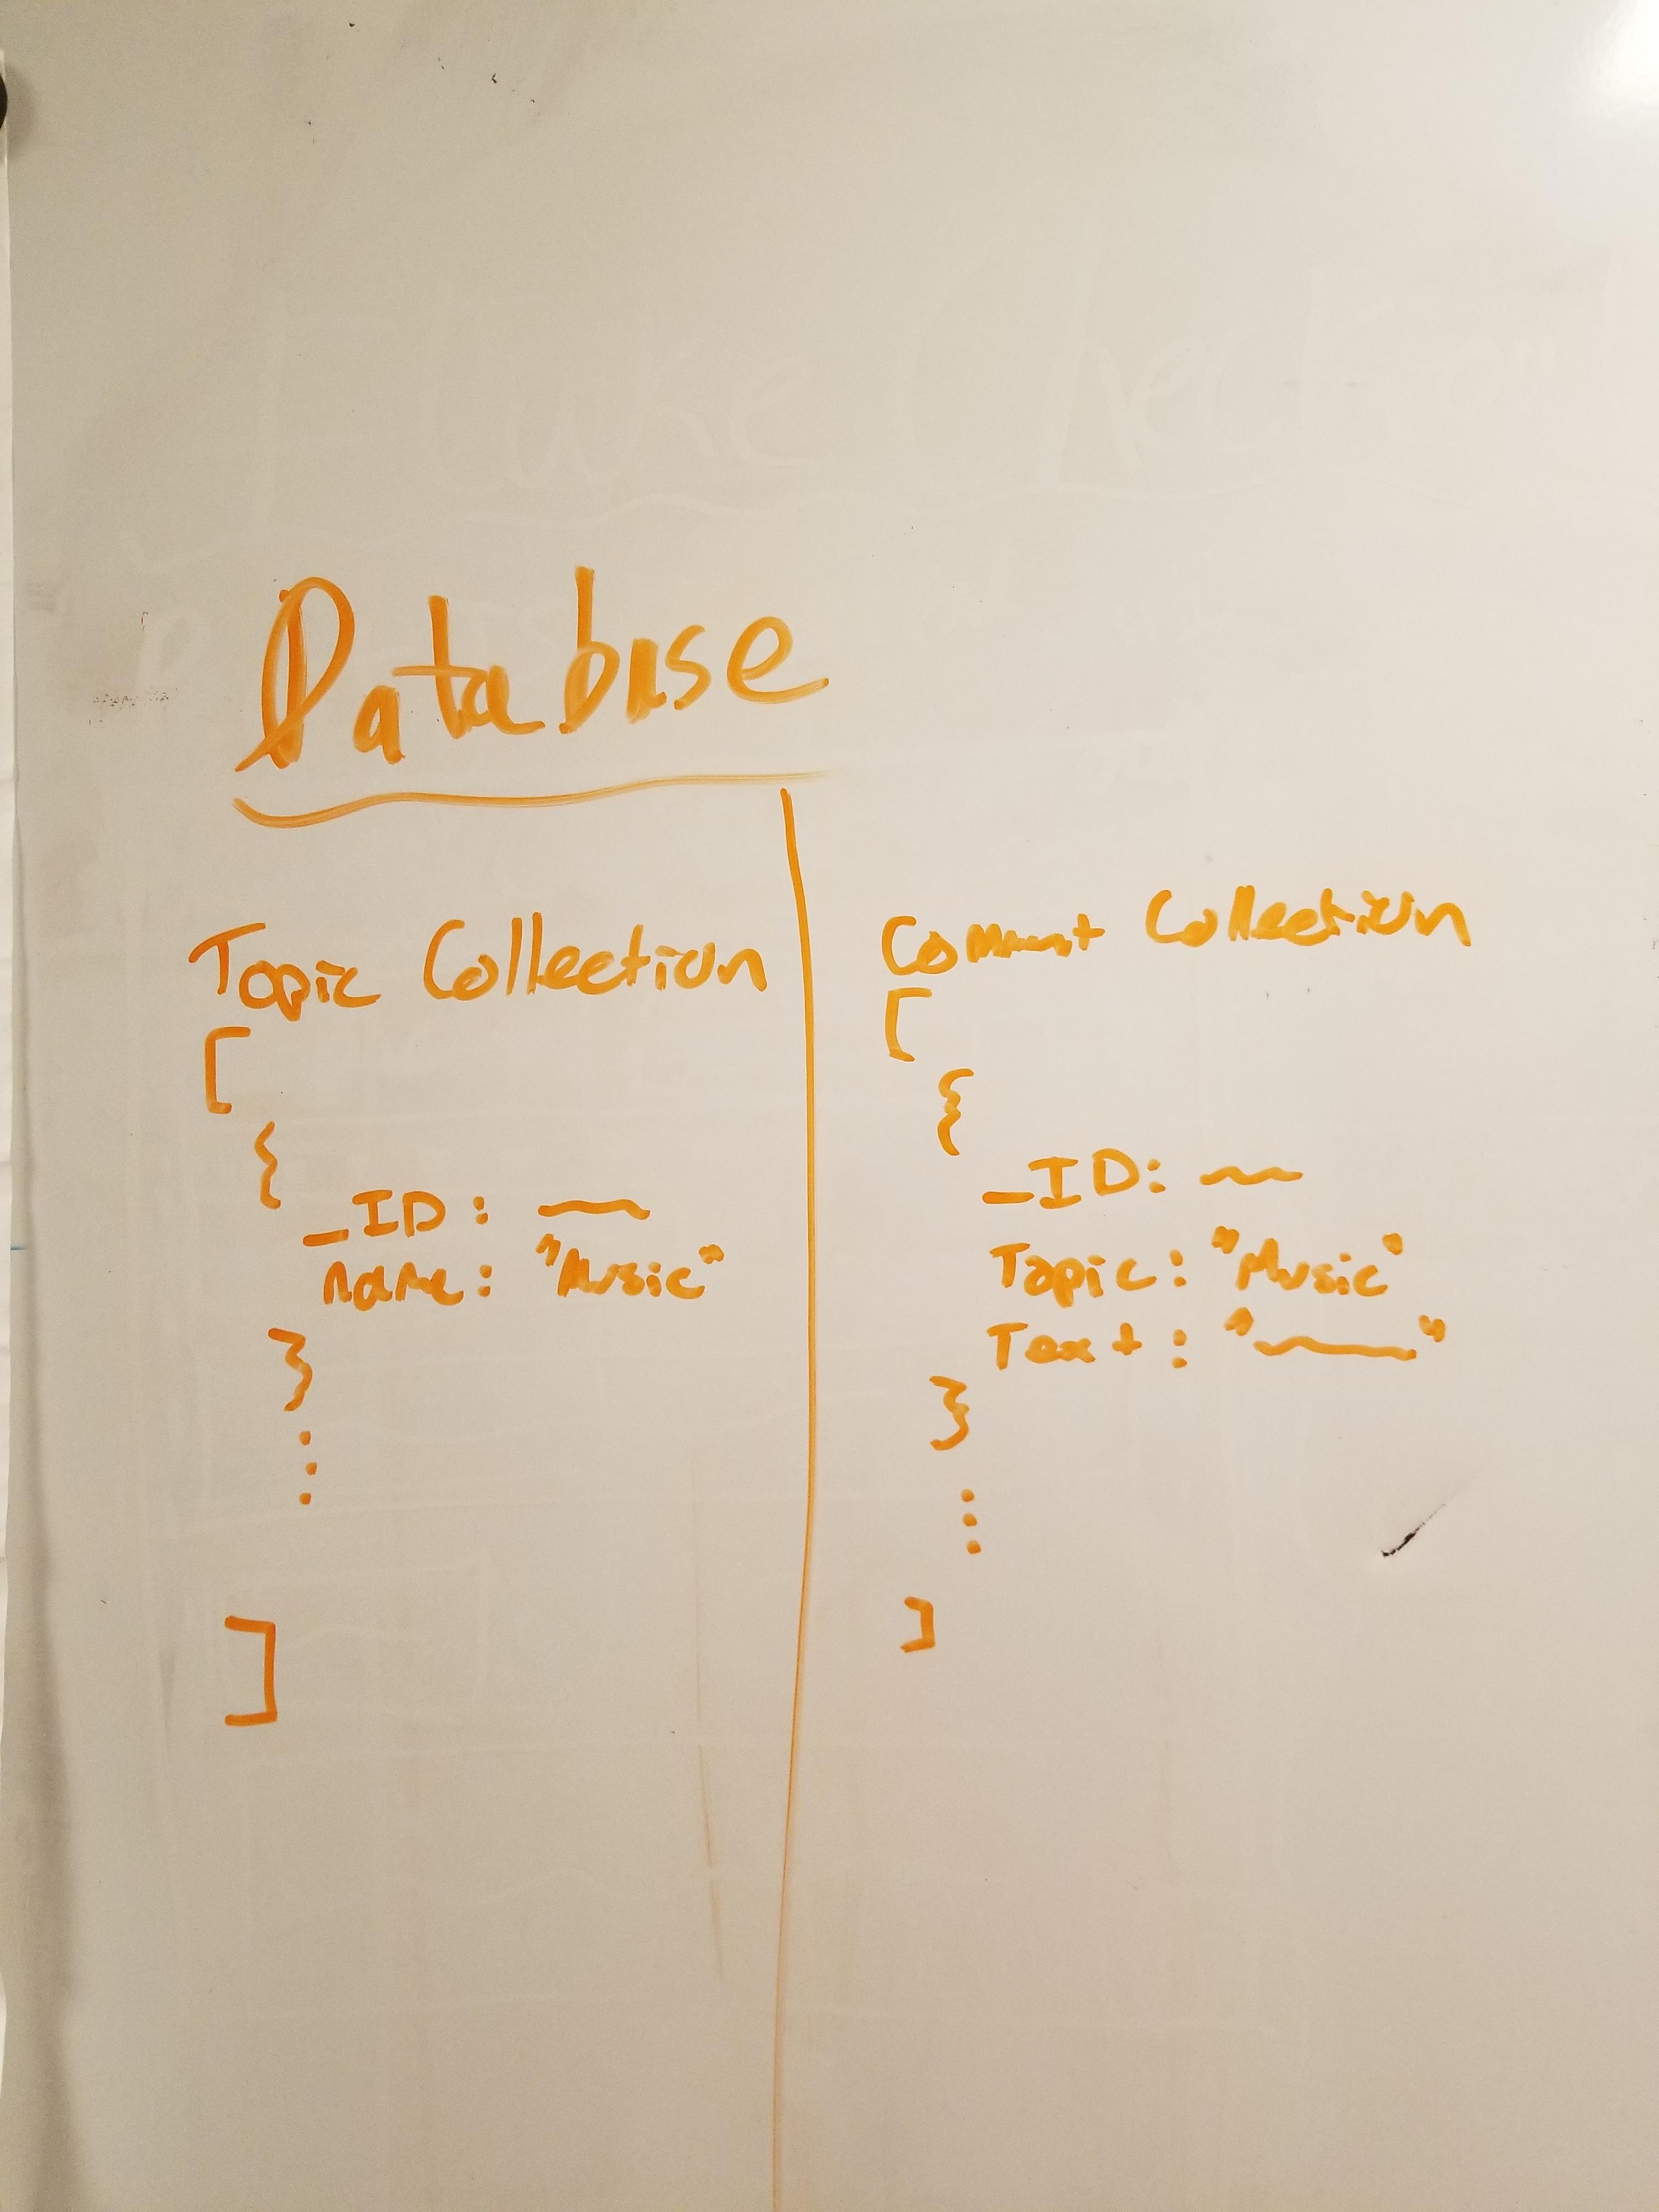 Database
Topic Collection
[
{
_ID:
name: "Music"
}
⋮
]
Comment Collection
[
{
_ID:
Topic: "Music"
Text: " "
}
⋮
]